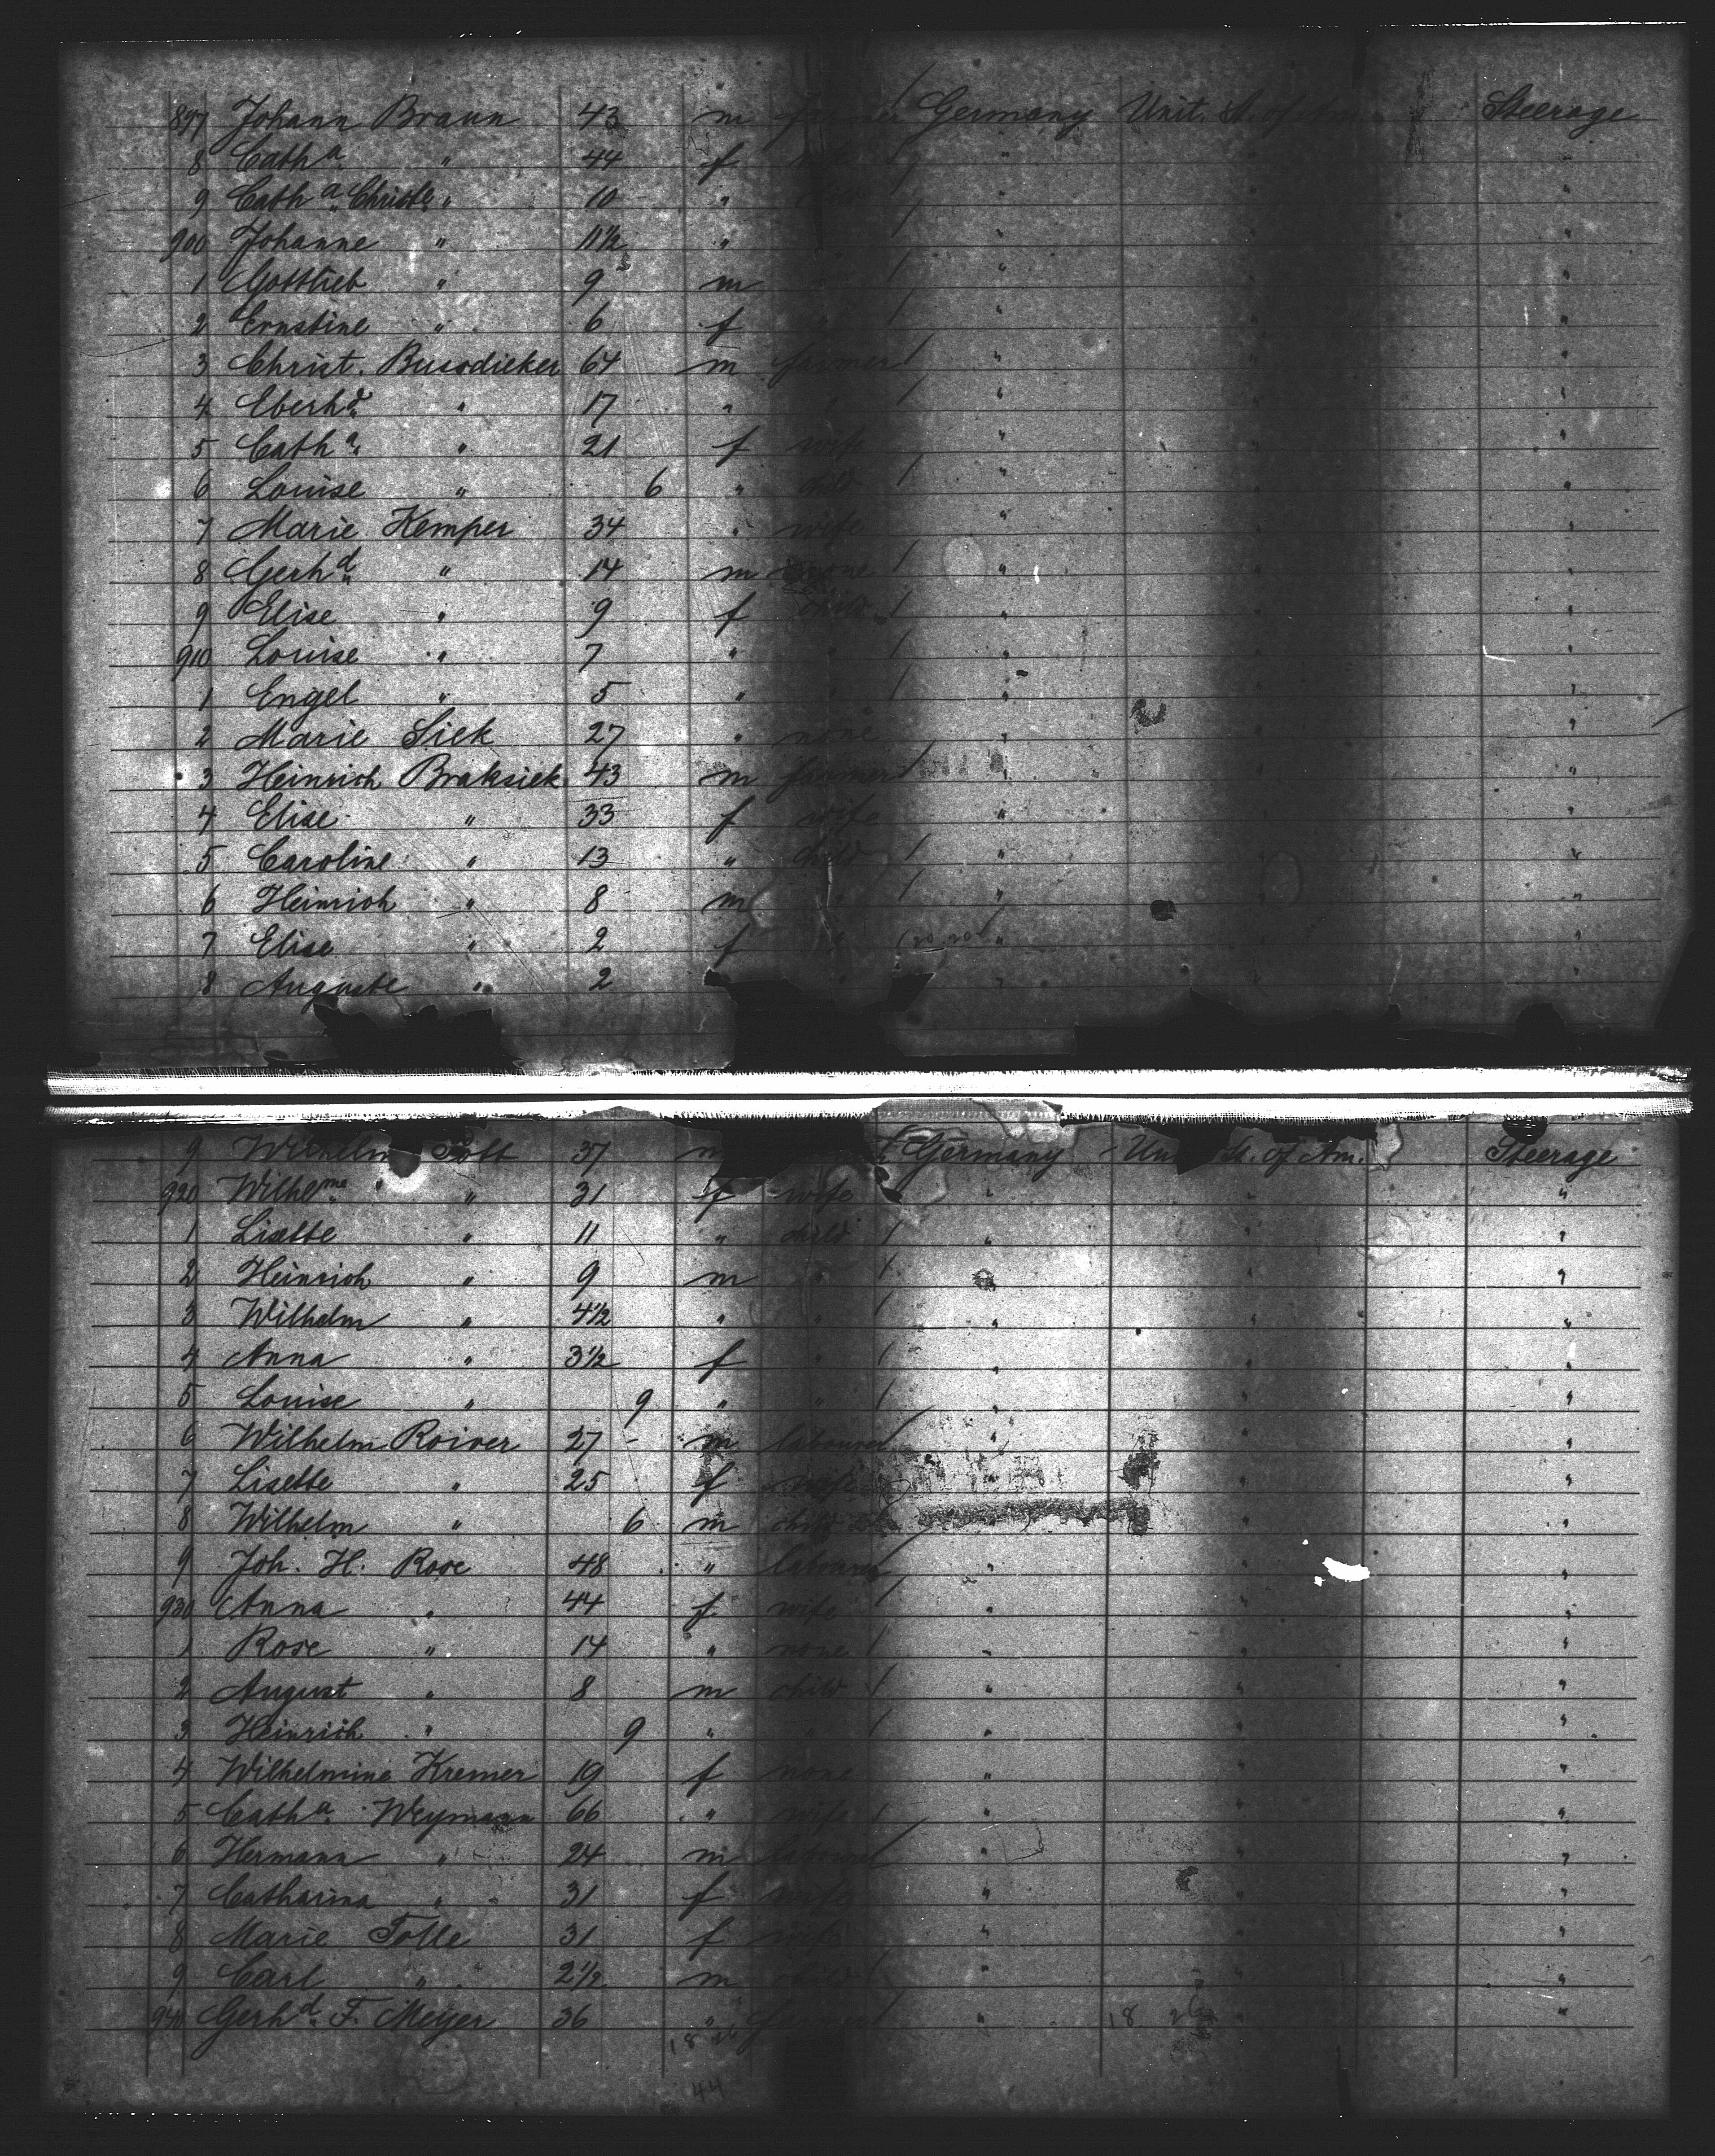 897 Johann Braun 43 m farmer Germany Unit. St. of Am. Steerage
8 Cath.a " 44 f wife " " "
9 Cath.a Christe. " 10 " child " " "
900 Johanne " 11½ " " " "
1 Gottlieb " 9 m " " " "
2 Ernstine " 6 f " " " "
3 Christ. Bussdieker 64 m farmer " " "
4 Eberhd. " 17 " " " " "
5 Cath.a " 21 f wife " " "
6 Louise " 6 " child " " "
7 Marie Kemper 34 " wife " " "
8 Gerhd. " 14 m none " " "
9 Elise " 9 f child " " "
910 Louise " 7 " " " " "
1 Engel " 5 " " " " "
2 Marie Siek 27 " none " " "
3 Heinrich Braksiek 43 m farmer " " "
4 Elise " 33 f wife " " "
5 Caroline " 13 " child " " "
6 Heinrich " 8 m " " " "
7 Elise " 2 f " " " "
8 Auguste " 2 " " " "
9 Wilhelm Pott 37 m Germany Un St. of Am. Steerage
920 Wilhelme " 31 f wife " " "
1 Lisette " 11 " child " " "
2 Heinrich " 9 m " " " "
3 Wilhelm " 4½ " " " " "
4 Anna " 3½ f " " " "
5 Louise " 9 " " " " "
6 Wilhelm Roiver 27 - m labourer " " "
7 Lisette " 25 f wife " "
8 Wilhelm " 6 m child " "
9 Joh. H. Rose 48 " labourer " " "
930 Anna " 44 f wife " " "
1 Rose " 14 " none " " "
2 August " 8 m child " " "
3 Heinrich " 9 " " " " "
4 Wilhelmine Kremer 19 f none " " "
5 Cath.a Weymann 66 " wife " " "
6 Hermann " 24 m labourer " " "
7 Catharina " 31 f wife " " "
8 Marie Tolle 31 f wife " " "
9 Carl " 2½ m child " " "
940 Gerhd. F. Meyer 36 " farmer " " "
18 26
44